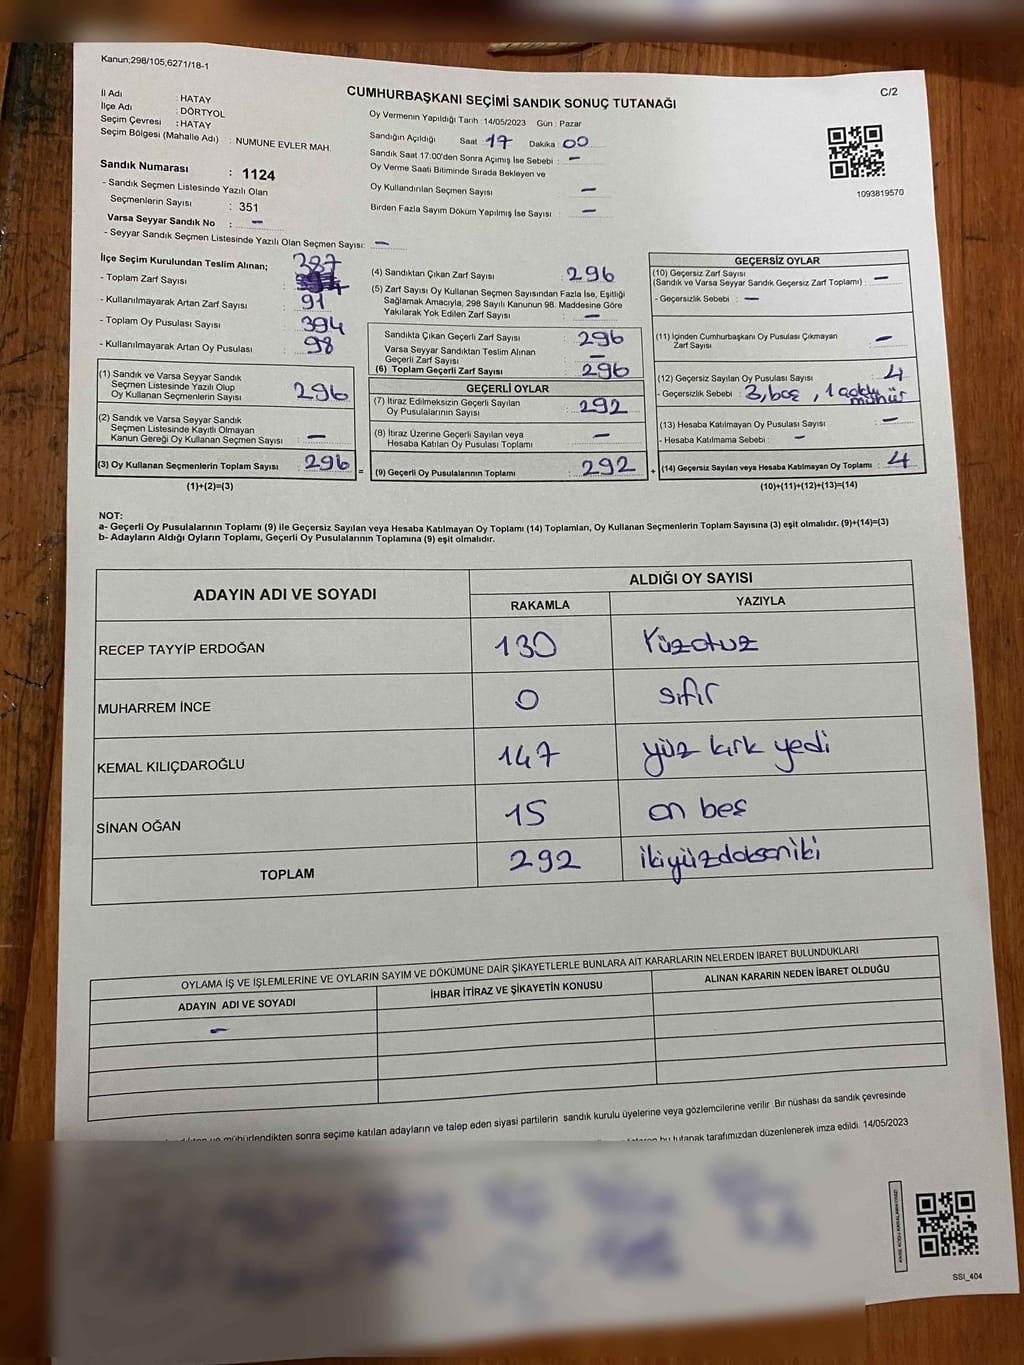 Kanun;298/105,6271/18-1
C/2
CUMHURBAŞKANI SEÇİMİ SANDIK SONUÇ TUTANAĞI
İl Adı : HATAY
İlçe Adı : DÖRTYOL
Seçim Çevresi : HATAY
Seçim Bölgesi (Mahalle Adı) : NUMUNE EVLER MAH.
Oy Vermenin Yapıldığı Tarih : 14/05/2023 Gün : Pazar
Sandığın Açıldığı Saat 17 Dakika : 00
Sandık Saat 17:00'den Sonra Açımış İse Sebebi : –
Oy Verme Saati Bitiminde Sırada Bekleyen ve
Oy Kullandırılan Seçmen Sayısı –
Birden Fazla Sayım Döküm Yapılmış İse Sayısı : –
1093819570
Sandık Numarası : 1124
- Sandık Seçmen Listesinde Yazılı Olan
Seçmenlerin Sayısı : 351
Varsa Seyyar Sandık No : –
- Seyyar Sandık Seçmen Listesinde Yazılı Olan Seçmen Sayısı: –
İlçe Seçim Kurulundan Teslim Alınan; 387
- Toplam Zarf Sayısı :
- Kullanılmayarak Artan Zarf Sayısı : 91
- Toplam Oy Pusulası Sayısı : 394
- Kullanılmayarak Artan Oy Pusulası : 98
(1) Sandık ve Varsa Seyyar Sandık
Seçmen Listesinde Yazılı Olup
Oy Kullanan Seçmenlerin Sayısı : 296
(2) Sandık ve Varsa Seyyar Sandık
Seçmen Listesinde Kayıtlı Olmayan
Kanun Gereği Oy Kullanan Seçmen Sayısı : –
(3) Oy Kullanan Seçmenlerin Toplam Sayısı : 296 =
(1)+(2)=(3)
(4) Sandıktan Çıkan Zarf Sayısı : 296
(5) Zarf Sayısı Oy Kullanan Seçmen Sayısından Fazla İse, Eşitliği
Sağlamak Amacıyla, 298 Sayılı Kanunun 98. Maddesine Göre
Yakılarak Yok Edilen Zarf Sayısı : –
Sandıkta Çıkan Geçerli Zarf Sayısı : 296
Varsa Seyyar Sandıktan Teslim Alınan
Geçerli Zarf Sayısı : –
(6) Toplam Geçerli Zarf Sayısı : 296
GEÇERLİ OYLAR
(7) İtiraz Edilmeksizin Geçerli Sayılan
Oy Pusulalarının Sayısı : 292
(8) İtiraz Üzerine Geçerli Sayılan veya
Hesaba Katılan Oy Pusulası Toplamı : –
(9) Geçerli Oy Pusulalarının Toplamı : 292 +
GEÇERSİZ OYLAR
(10) Geçersiz Zarf Sayısı
(Sandık ve Varsa Seyyar Sandık Geçersiz Zarf Toplamı) : –
- Geçersizlik Sebebi : –
(11) İçinden Cumhurbaşkanı Oy Pusulası Çıkmayan
Zarf Sayısı : –
(12) Geçersiz Sayılan Oy Pusulası Sayısı : 4
- Geçersizlik Sebebi : 3, boş, 1 çoklu
mühür
(13) Hesaba Katılmayan Oy Pusulası Sayısı : –
- Hesaba Katılmama Sebebi : –
(14) Geçersiz Sayılan veya Hesaba Katılmayan Oy Toplamı : 4
(10)+(11)+(12)+(13)=(14)
NOT:
a- Geçerli Oy Pusulalarının Toplamı (9) ile Geçersiz Sayılan veya Hesaba Katılmayan Oy Toplamı (14) Toplamları, Oy Kullanan Seçmenlerin Toplam Sayısına (3) eşit olmalıdır. (9)+(14)=(3)
b- Adayların Aldığı Oyların Toplamı, Geçerli Oy Pusulalarının Toplamına (9) eşit olmalıdır.
ADAYIN ADI VE SOYADI
ALDIĞI OY SAYISI
RAKAMLA YAZIYLA
RECEP TAYYİP ERDOĞAN 130 Yüzotuz
MUHARREM İNCE 0 sıfır
KEMAL KILIÇDAROĞLU 147 yüz kırk yedi
SİNAN OĞAN 15 on beş
TOPLAM 292 ikiyüzdoksaniki
OYLAMA İŞ VE İŞLEMLERİNE VE OYLARIN SAYIM VE DÖKÜMÜNE DAİR ŞİKAYETLERLE BUNLARA AİT KARARLARIN NELERDEN İBARET BULUNDUKLARI
ADAYIN ADI VE SOYADI İHBAR İTİRAZ VE ŞİKAYETİN KONUSU ALINAN KARARIN NEDEN İBARET OLDUĞU
–
mühürlendikten sonra seçime katılan adayların ve talep eden siyasi partilerin sandık kurulu üyelerine veya gözlemcilerine verilir .Bir nüshası da sandık çevresinde
bu tutanak tarafımızdan düzenlenerek imza edildi. 14/05/2023
SSI_404